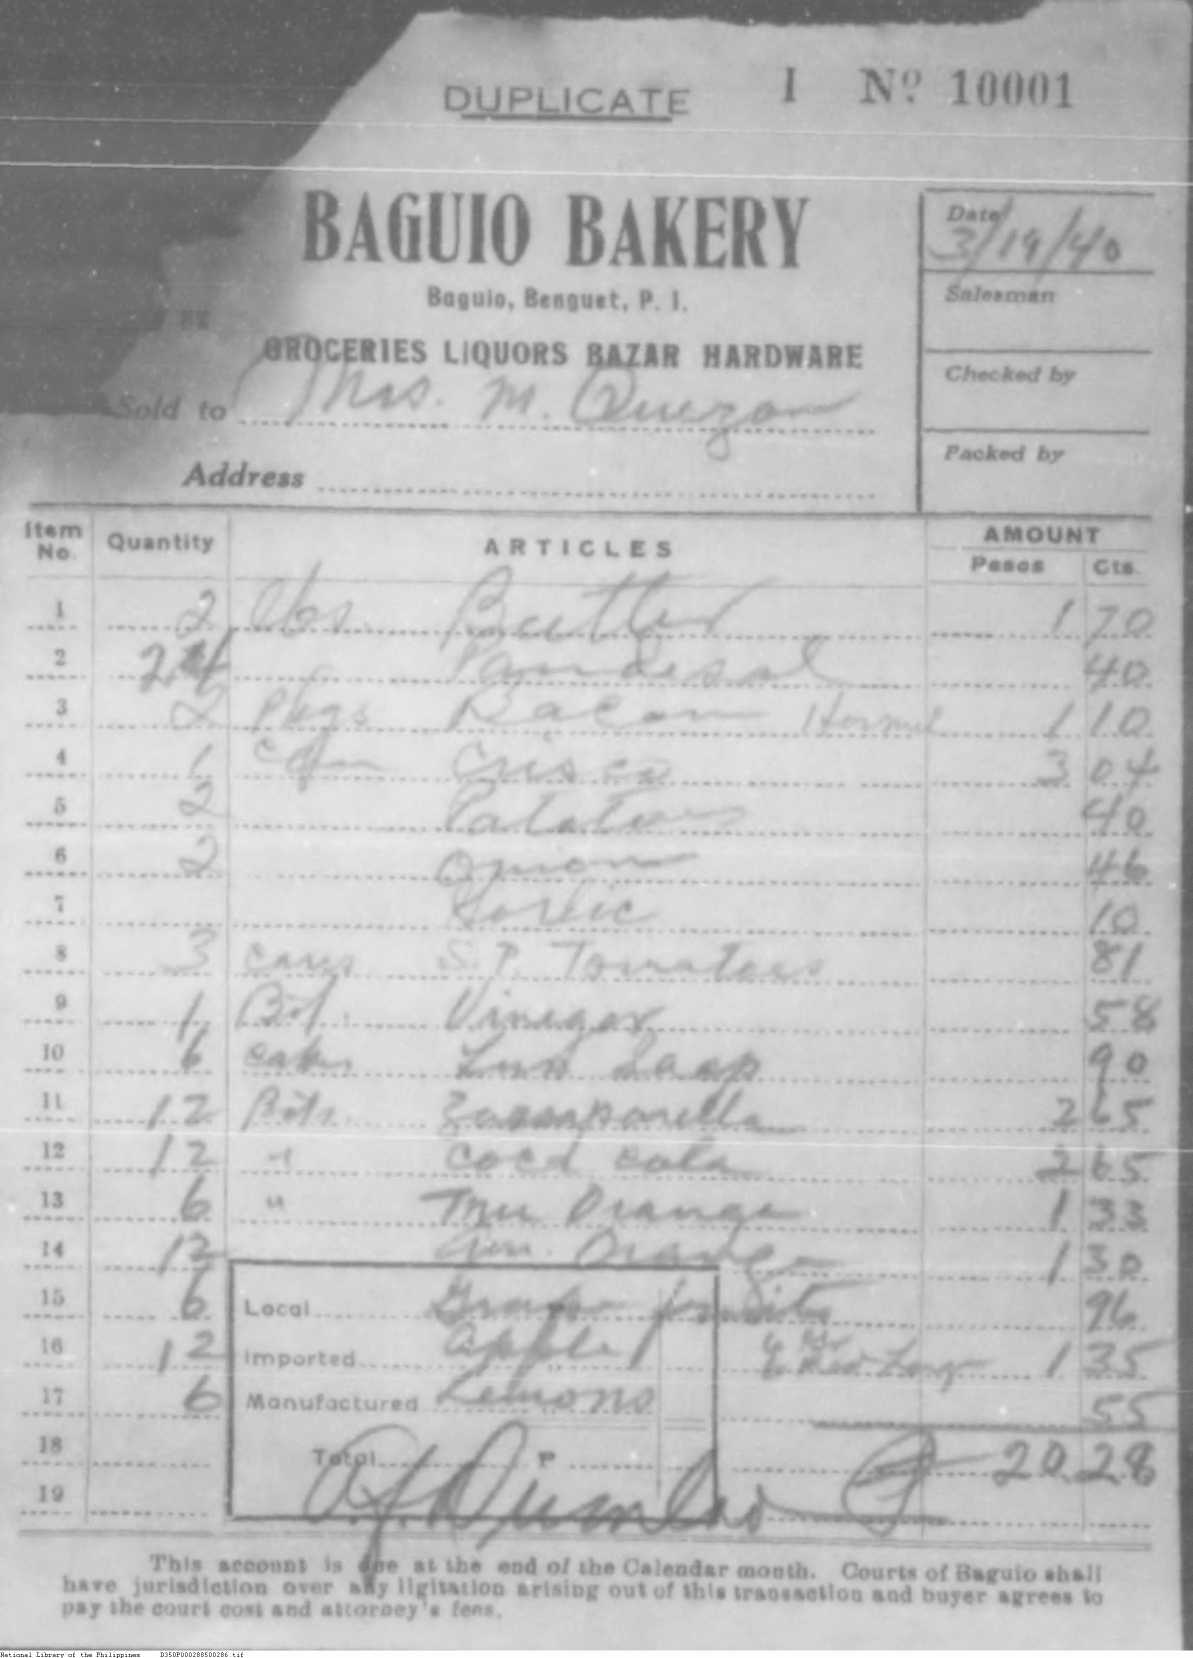 DUPLICATE I Nº 10001
BAGUIO BAKERY
Baguio, Benguet, P. I.
GROCERIES LIQUORS BAZAR HARDWARE
Sold to Mrs. M. Quezon
Address
Date 3/19/40
Salesman
Checked by
Packed by
Item No. Quantity ARTICLES AMOUNT Pesos Cts.
1 2 lbs. Butter 1 70
2 24 Pan de sal 40
3 2 Pkgs Bacon Hormel 1 10
4 1 Crisco 3 04
5 2 Patatoes 40
6 2 Onion 46
7 Garlic 10
8 3 cans S.P. Tomatoes 81
9 1 Bot. Vinegar 58
10 6 cakes Lux Soap 90
11 12 Bots. Zarsaparella 2 65
12 12 " Coca Cola 2 65
13 6 " Tru Orange 1 33
14 12 Orange 1 30
15 6 Grape fruits 96
16 12 Apple 1 35
17 6 Lemons 55
18 20.28
19
Local
Imported
Manufactured
Total P
This account is due at the end of the Calendar month. Courts of Baguio shall
have jurisdiction over any ligitation arising out of this transaction and buyer agrees to
pay the court cost and attorney's fens.
National Library of the Philippines D350P000288500286.tif